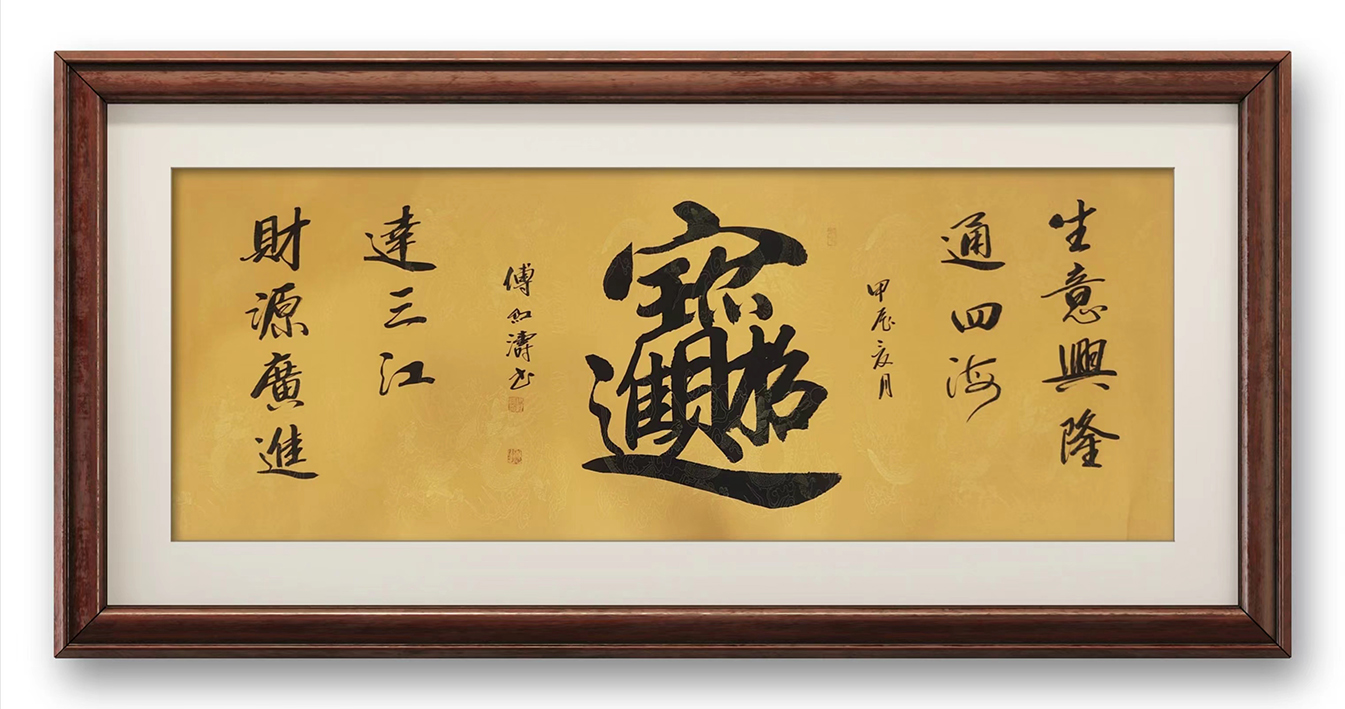 生意興隆
通四海
甲辰亥月
招財進寶
財源廣進
達三江
傅红濤书